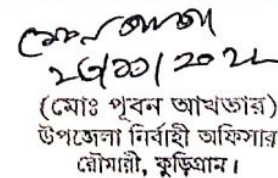 ২৩/১১/২০২২
(মোঃ পূবন আখতার)
উপজেলা নির্বাহী অফিসার
রৌমারী, কুড়িগ্রাম।